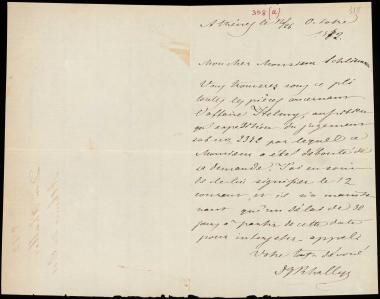 398 (a)
Athènes le 14/26 Octobre
1872.
Mon cher Monsieur Schliemann
Vous trouverez sous ce pli
toutes les pièces concernant
l'affaire
qu'expédition du jugement
sub no. 2342 par lequel ce
Monsieur a été débouté de
sa demande. J'ai eu soin
de le lui signifier le 12
courant, et il n'a mainte
nant qu'un délai de 30
jours à partir de cette date
pour interjeter appel
Votre tout dévoué